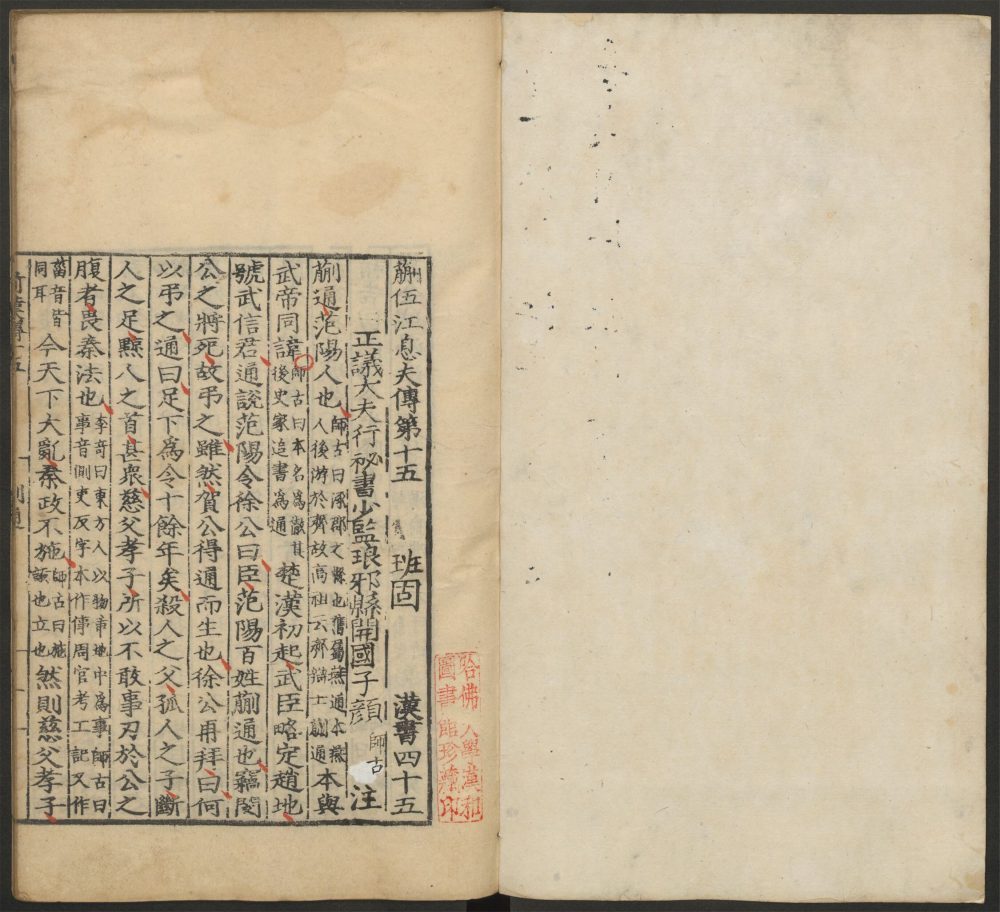 哈佛大學漢和
圖書館珍藏印
蒯伍江息夫傳第十五 班固 漢書四十五
正議大夫行祕書少監琅邪縣開國子顏師古注
蒯通范陽人也師古曰涿郡之縣也舊屬燕通本燕人後游於齊故高祖云齊辯士蒯通本與
武帝同諱師古曰本名爲徹其後史家追書爲通楚漢初起武臣略定趙地
號武信君通說范陽令徐公曰臣范陽百姓蒯通也竊閔
公之將死故弔之雖然賀公得通而生也徐公再拜曰何
以弔之通曰足下爲令十餘年矣殺人之父孤人之子斷
人之足黥人之首甚衆慈父孝子所以不敢事刃於公之
腹者畏秦法也李奇曰東方人以物臿地中爲事師古曰事音側吏反字本作倳周官考工記又作
菑音皆同耳今天下大亂秦政不施師古曰施設也立也然則慈父孝子